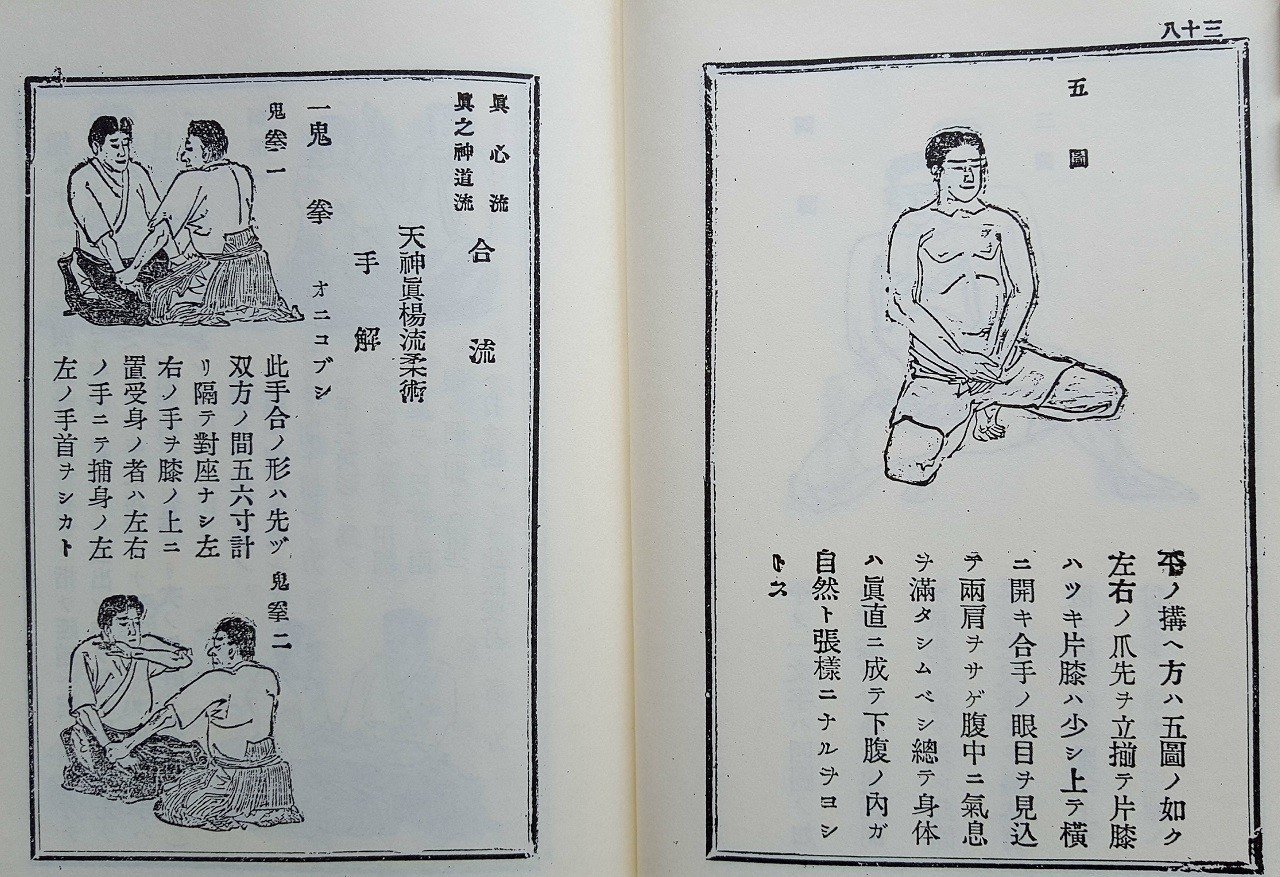 三十八
五圖
ノ搆ヘ方ハ五圖ノ如ク
左右ノ爪先ヲ立揃テ片膝
ハツキ片膝ハ少シ上テ橫
ニ開キ合手ノ眼目ヲ見込
テ兩肩ヲサゲ腹中ニ氣息
ヲ滿タシムベシ總テ身体
ハ眞直ニ成テ下腹ノ內ガ
自然ト張樣ニナルヲヨシ
トス
眞心流
眞之神道流
合流
天神眞楊流柔術
手解
一鬼拳 オニコブシ
鬼拳一
此手合ノ形ハ先ヅ
双方ノ間五六寸計
リ隔テ對座ナシ左
右ノ手ヲ膝ノ上ニ
置受身ノ者ハ左右
ノ手ニテ捕身ノ左
左ノ手首ヲシカト
鬼拳二